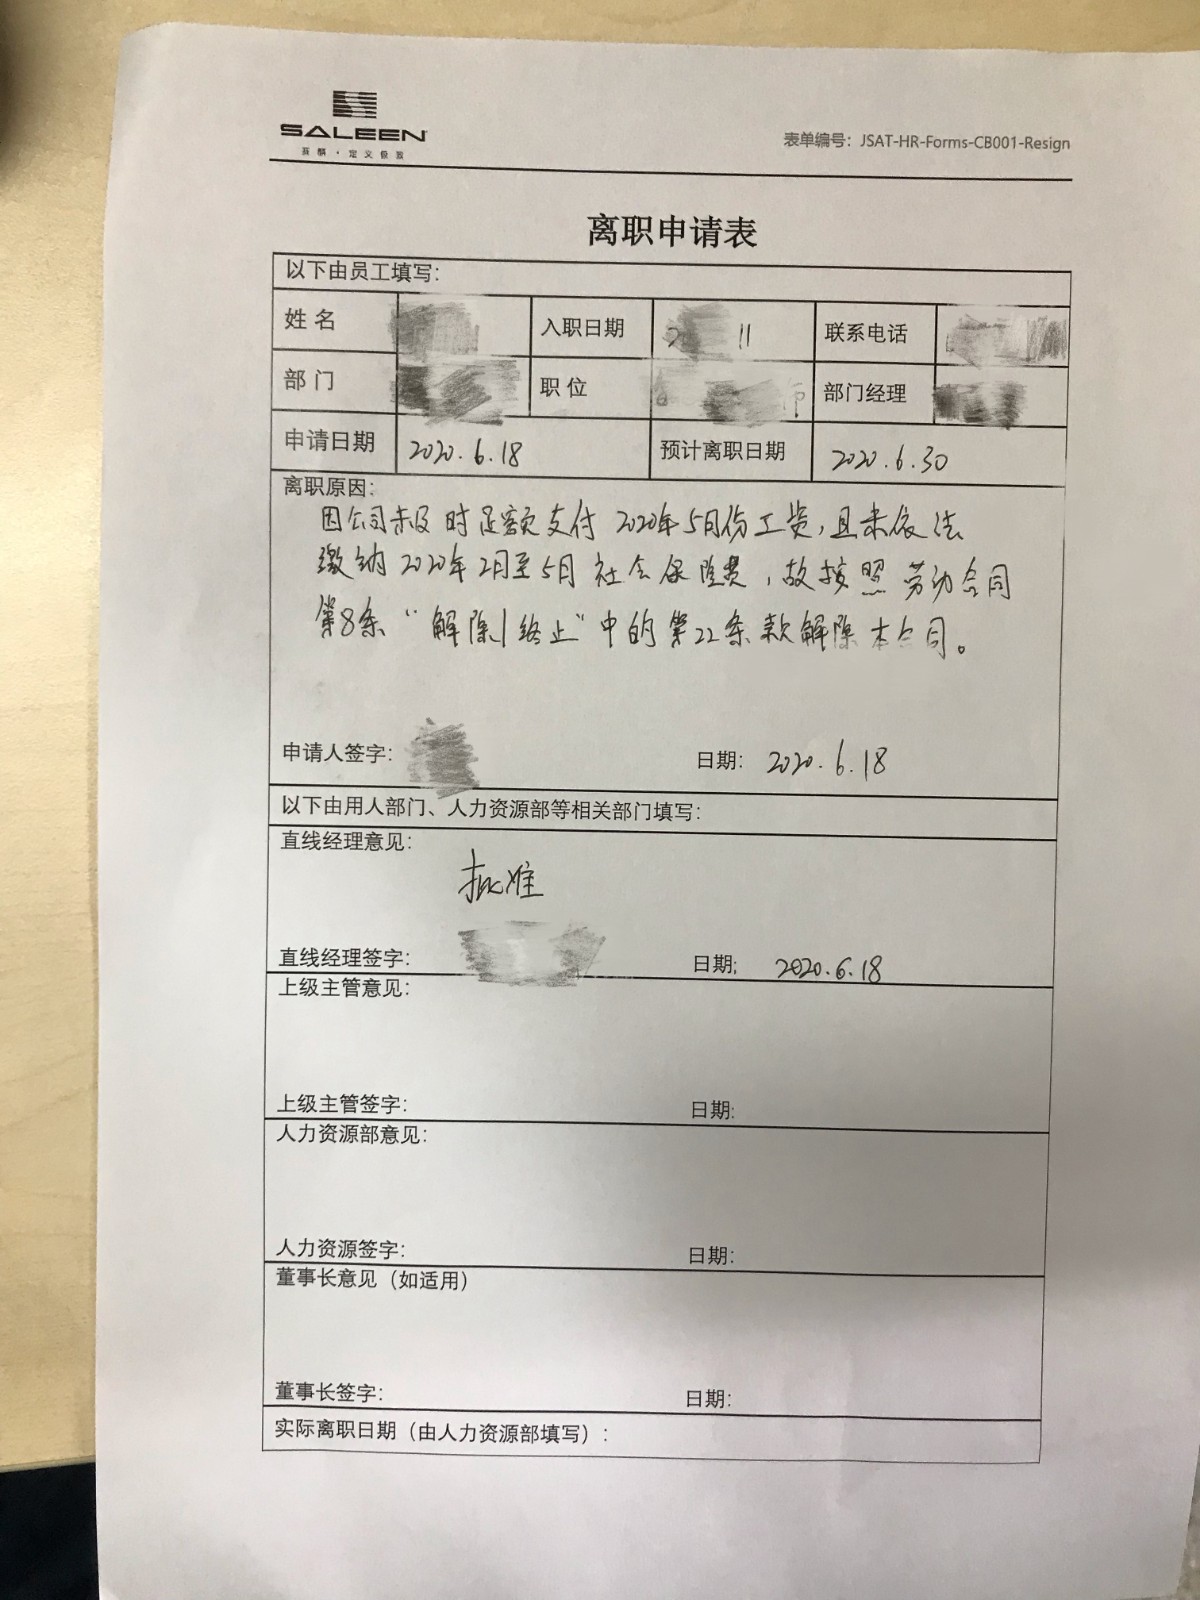 SALEEN
赛麟·定义征服
表单编号：JSAT-HR-Forms-CB001-Resign
离职申请表
以下由员工填写：
姓名 入职日期 11 联系电话
部门 职位 师 部门经理
申请日期 2020.6.18 预计离职日期 2020.6.30
离职原因：
因公司未及时足额支付2020年5月份工资，且未依法
缴纳2020年2月至5月社会保险费，故按照劳动合同
第8条“解除\终止”中的第22条款解除本合同。
申请人签字： 日期： 2020.6.18
以下由用人部门、人力资源部等相关部门填写：
直线经理意见：
批准
直线经理签字： 日期; 2020.6.18
上级主管意见：
上级主管签字： 日期:
人力资源部意见：
人力资源签字： 日期：
董事长意见（如适用）
董事长签字： 日期：
实际离职日期（由人力资源部填写）：